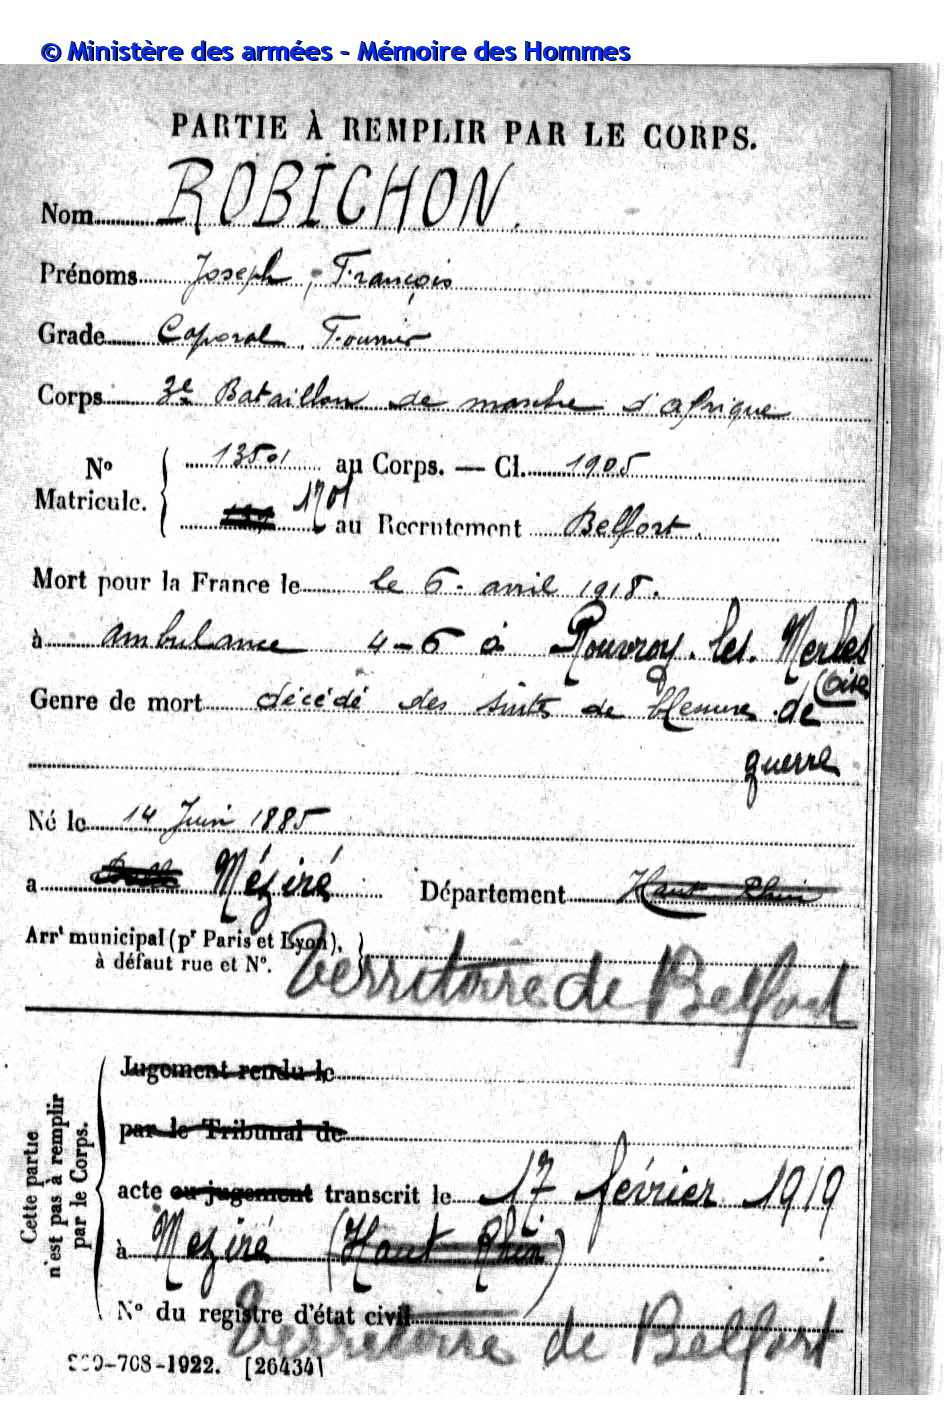 © Ministère des armées - Mémoire des Hommes
PARTIE À REMPLIR PAR LE CORPS.
Nom ROBICHON.
Prénoms Joseph, François
Grade Caporal Fournier
Corps 3e Bataillon de marche d'afrique
No Matricule. 13501 au Corps. — Cl. 1905
1701 au Recrutement Belfort.
Mort pour la France le le 6 avril 1918.
à ambulance 4-6 à Rouvroy-les-Merles
(Oise
Genre de mort décédé des suites de blessure de
guerre
Né le 14 Juin 1885
a Méziré Département Haut Rhin
Arrt municipal (pr Paris et Lyon),
à défaut rue et No.
Territoire de Belfort
Cette partie n'est pas à remplir par le Corps.
Jugement rendu le
par le Tribunal de
acte ou jugement transcrit le 17 février 1919
à Meziré (Haut Rhin)
No du registre d'état civil
Territoire de Belfort
-708-1922. [26434]